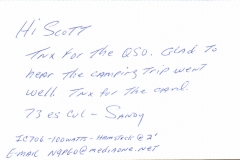 Hi Scott
Tnx for the QSO. Glad to
hear the camping trip went
well. Tnx for the card.
73 es cul - Sandy
IC706 - 100watts - Hamstick @ 2'
E-mail N9PGO@mediaone.net